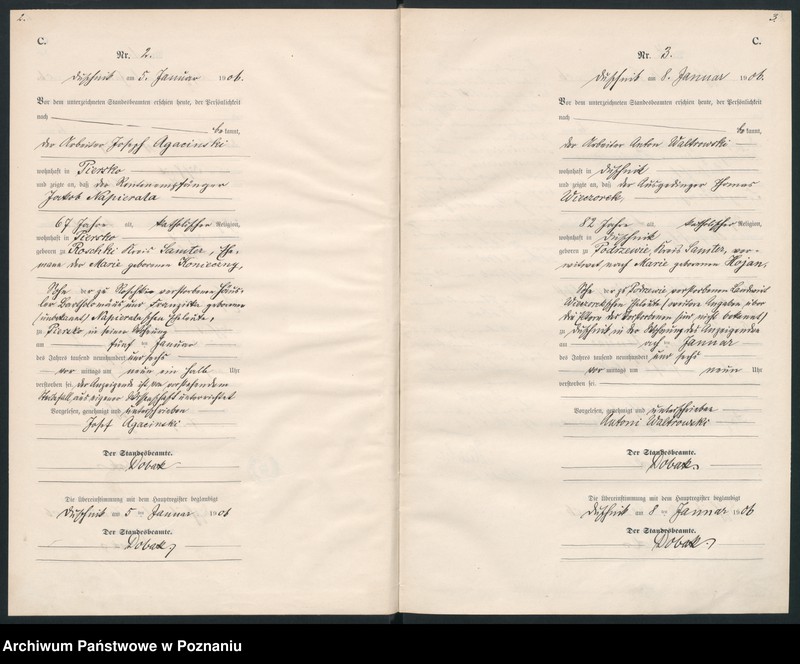 2.
C.
Nr. 2.
Duschnik am 5. Januar 1906.
Vor dem unterzeichneten Standesbeamten erschien heute, der Persönlichkeit
nach
bekannt,
der Arbeiter Josef Agacinski
wohnhaft in Piersko
und zeigte an, daß der Rentenempfänger
Jakob Napierala
67 Jahre alt, katholischer Religion,
wohnhaft in Piersko
geboren zu Roschki Kreis Samter, Ehe-
mann der Marie geborenen Konieczny,
Sohn der zu verstorbenen Häus-
ler Bartholomäus und Franziska geborene
(unbekannt) Napieralaschen Eheleute,
zu Piersko in seiner Wohnung
am fünf ten Januar
des Jahres tausend neunhundert und sechs
vor mittags um neun ein halb Uhr
verstorben sei, der Anzeigende ist von vorstehendem
Sterbefall aus eigener Wissenschaft unterrichtet
Vorgelesen, genehmigt und unterschrieben
Josef Agacinski
Der Standesbeamte.
Dobak
Die Übereinstimmung mit dem Hauptregister beglaubigt
Duschnik am 5 ten Januar 1906
Der Standesbeamte.
Dobak
3.
C.
Nr. 3.
Duschnik am 8. Januar 1906.
Vor dem unterzeichneten Standesbeamten erschien heute, der Persönlichkeit
nach
bekannt,
der Arbeiter Anton Waltrowski
wohnhaft in Duschnik
und zeigte an, daß der Ausgedinger Thomas
Wieczorek,
82 Jahre alt, katholischer Religion,
wohnhaft in Duschnik
geboren zu Podrzewie, Kreis Samter, ver-
witwet nach Marie geborenen Hojan,
Sohn der zu Podrzewie verstorbenen Landwirt
Wieczorekschen Eheleute (weitere Angaben über
die Eltern des Verstorbenen sind nicht bekannt)
zu Duschnik in der Wohnung des Anzeigenden
am acht ten Januar
des Jahres tausend neunhundert und sechs
vor mittags um neun Uhr
verstorben sei.
Vorgelesen, genehmigt und unterschrieben
Antoni Waltrowski
Der Standesbeamte.
Dobak
Die Übereinstimmung mit dem Hauptregister beglaubigt
Duschnik am 8 ten Januar 1906
Der Standesbeamte.
Dobak
Archiwum Państwowe w Poznaniu